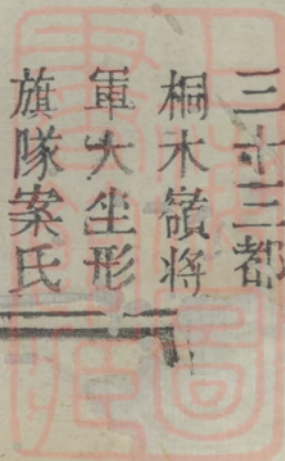 三十三都
桐木嶺将
軍大坐形
旗隊案氏